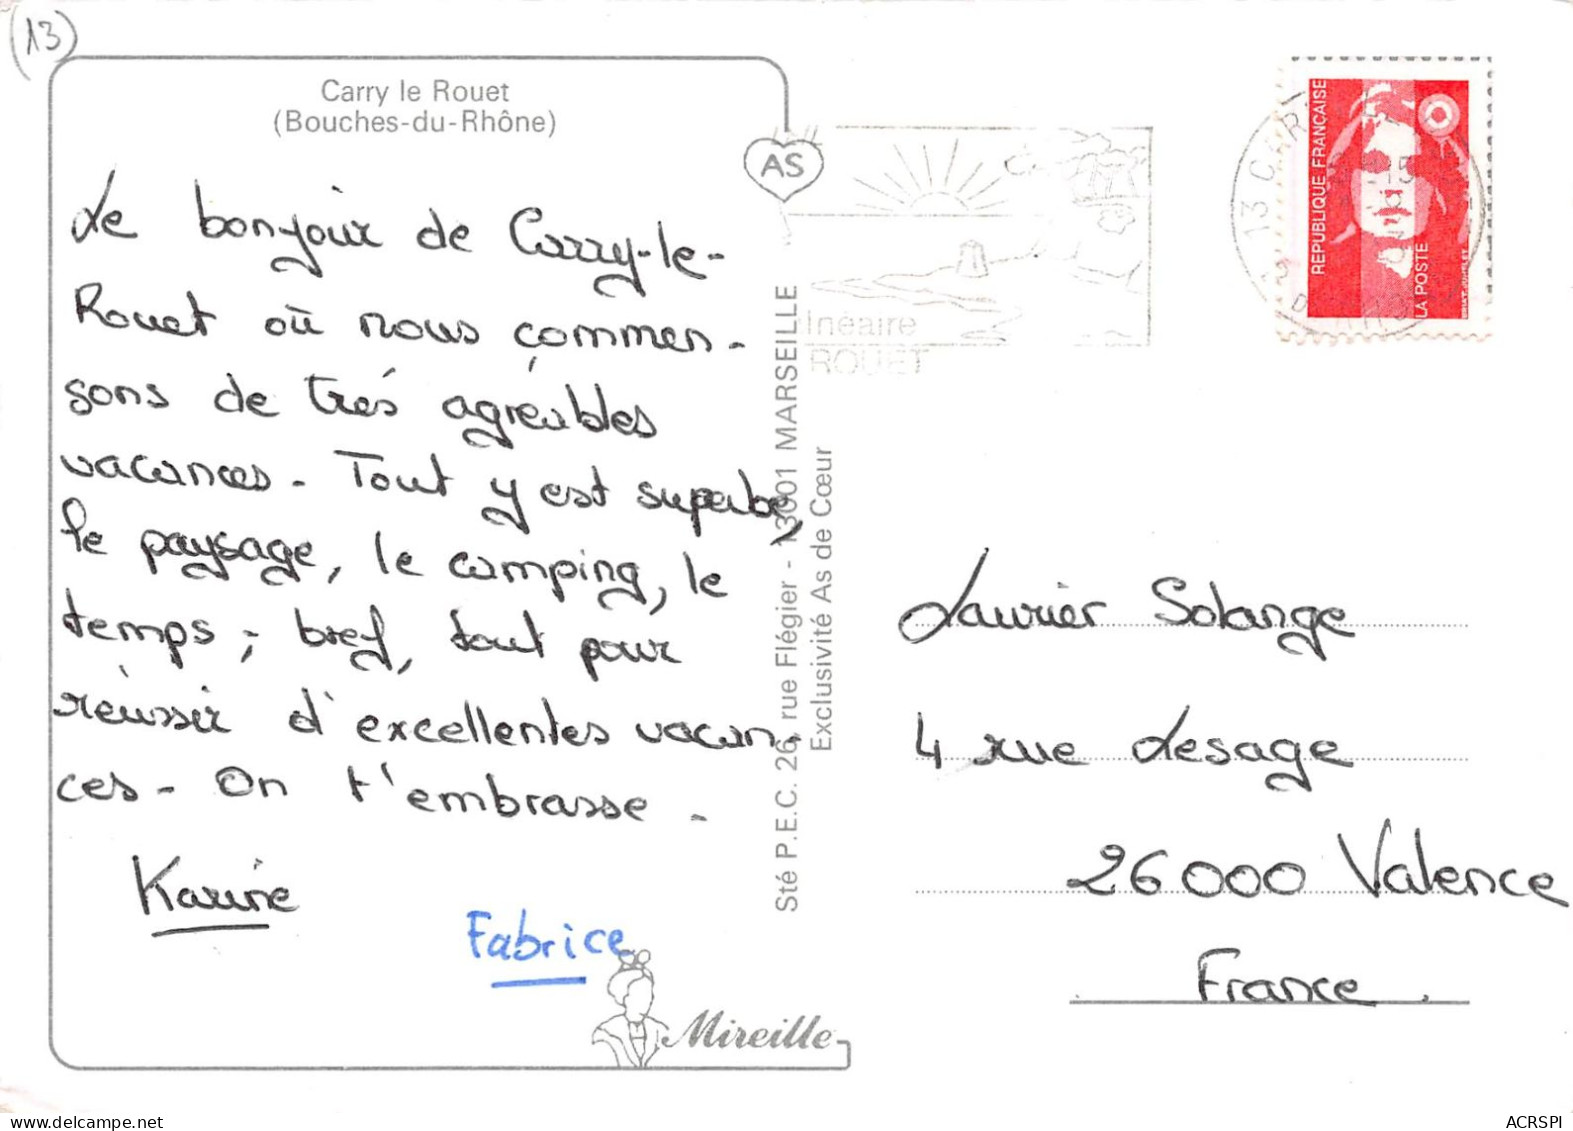 13
Carry le Rouet
(Bouches-du-Rhône)
Le bonjour de Carry-le-
Rouet où nous commen-
sons de trés agréables
vacances. Tout y est superbe,
le paysage, le camping, le
temps ; bref, tout pour
réussir d'excellentes vacan-
ces. On t'embrasse.
Karine
Fabrice
Mireille
AS
Sté P.E.C. 26, rue Flégier - 13001 MARSEILLE
Exclusivité As de Cœur
linéaire
ROUET
13 CAR
RÉPUBLIQUE FRANÇAISE
LA POSTE
Laurier Solange
4 rue Lesage
26000 Valence
France.
ACRSPI